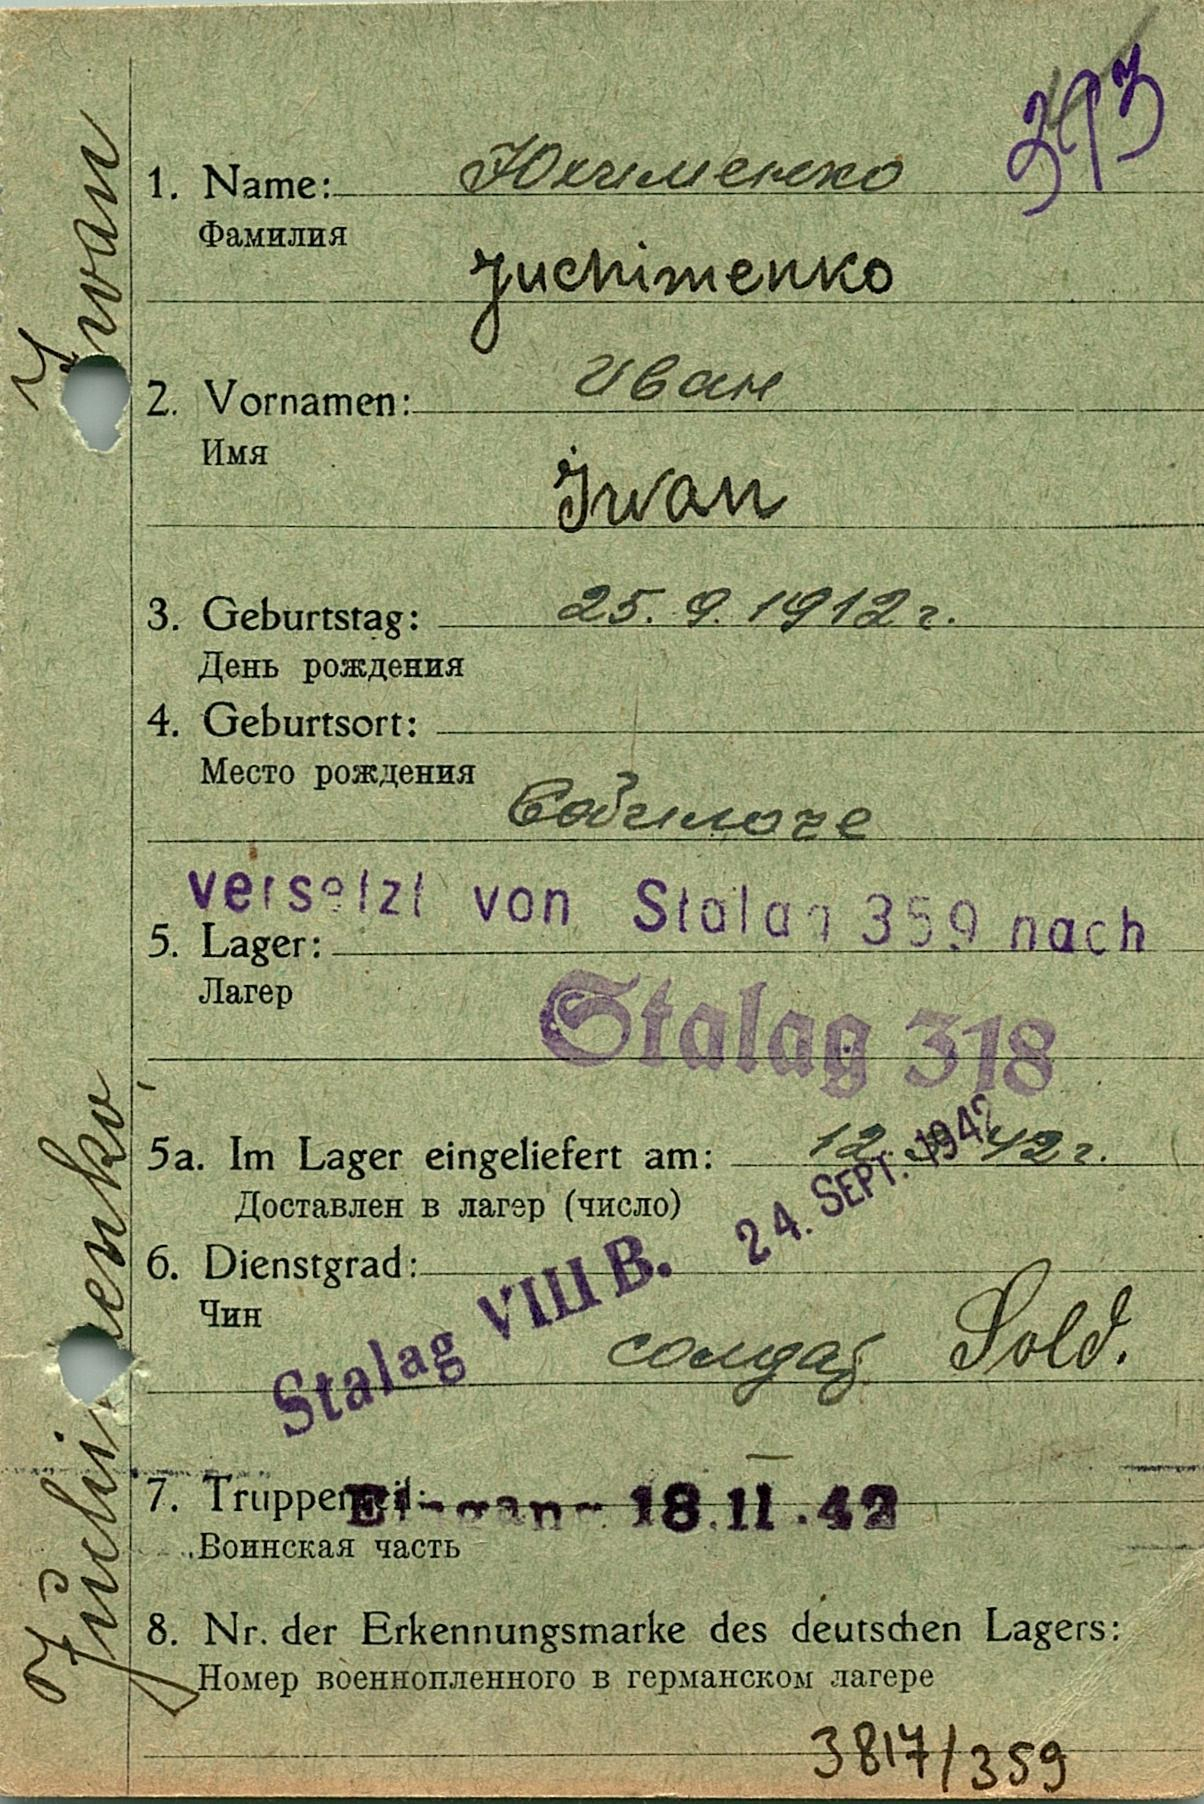 393
1. Name: Юхименко
Фамилия
Juchimenko
2. Vornamen: Иван
Имя
Iwan
3. Geburtstag: 25. 9. 1912 г.
День рождения
4. Geburtsort:
Место рождения
versetzt von Stalag 359 nach
5. Lager:
Лагер
Stalag 318
5a. Im Lager eingeliefert am: 12. 42 г.
Доставлен в лагер (число)
24. SEPT. 1942
6. Dienstgrad:
Чин
Stalag VIII B.
солдат Sold.
7. Truppenteil:
Eingang 18.11.42
Воинская часть
8. Nr. der Erkennungsmarke des deutschen Lagers:
Номер военнопленного в германском лагере
3817/359
Juchimenko Iwan